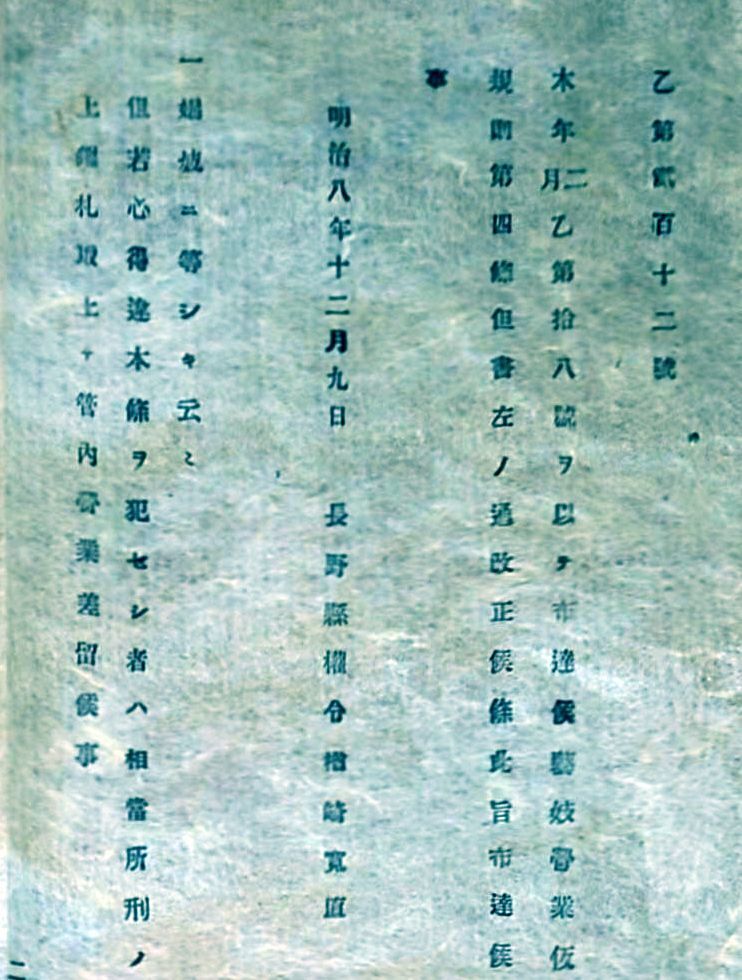 乙第貳百十二號
本年二月乙第拾八號ヲ以テ布達候藝妓營業仮
規則第四條但書左ノ通改正候條此旨布達候
事
明治八年十二月九日 長野縣權令楢崎寛直
一娼妓ニ等シキ云〻
但若心得違本條ヲ犯セシ者ハ相當所刑ノ
上鑑札取上ケ管内營業差留候事
二